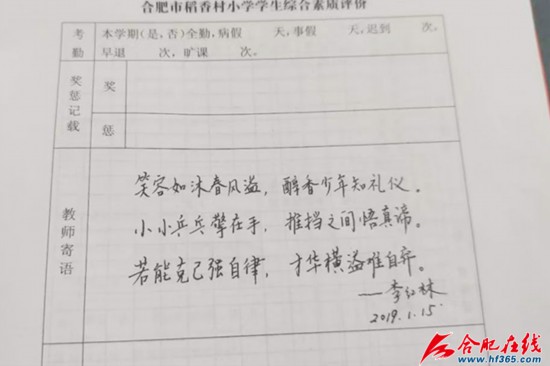 合肥市稻香村小学学生综合素质评价
考勤
本学期(是,否)全勤,病假 天,事假 天,迟到 次,
早退 次,旷课 次。
奖惩记载
奖
惩
教师寄语
笑容如沐春风溢,醇香少年知礼仪。
小小乒乓擎在手,推挡之间悟真谛。
若能克己强自律,才华横溢难自弃。
——李红林
2019.1.15
合肥在线
www.hf365.com